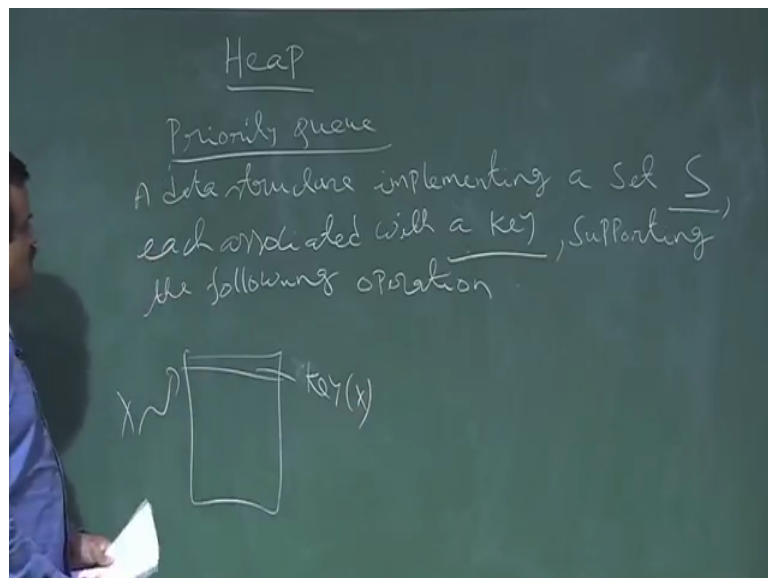 Heap
Priority queue
A data structure implementing a set S,
each associated with a key, supporting
the following operation
X key(x)